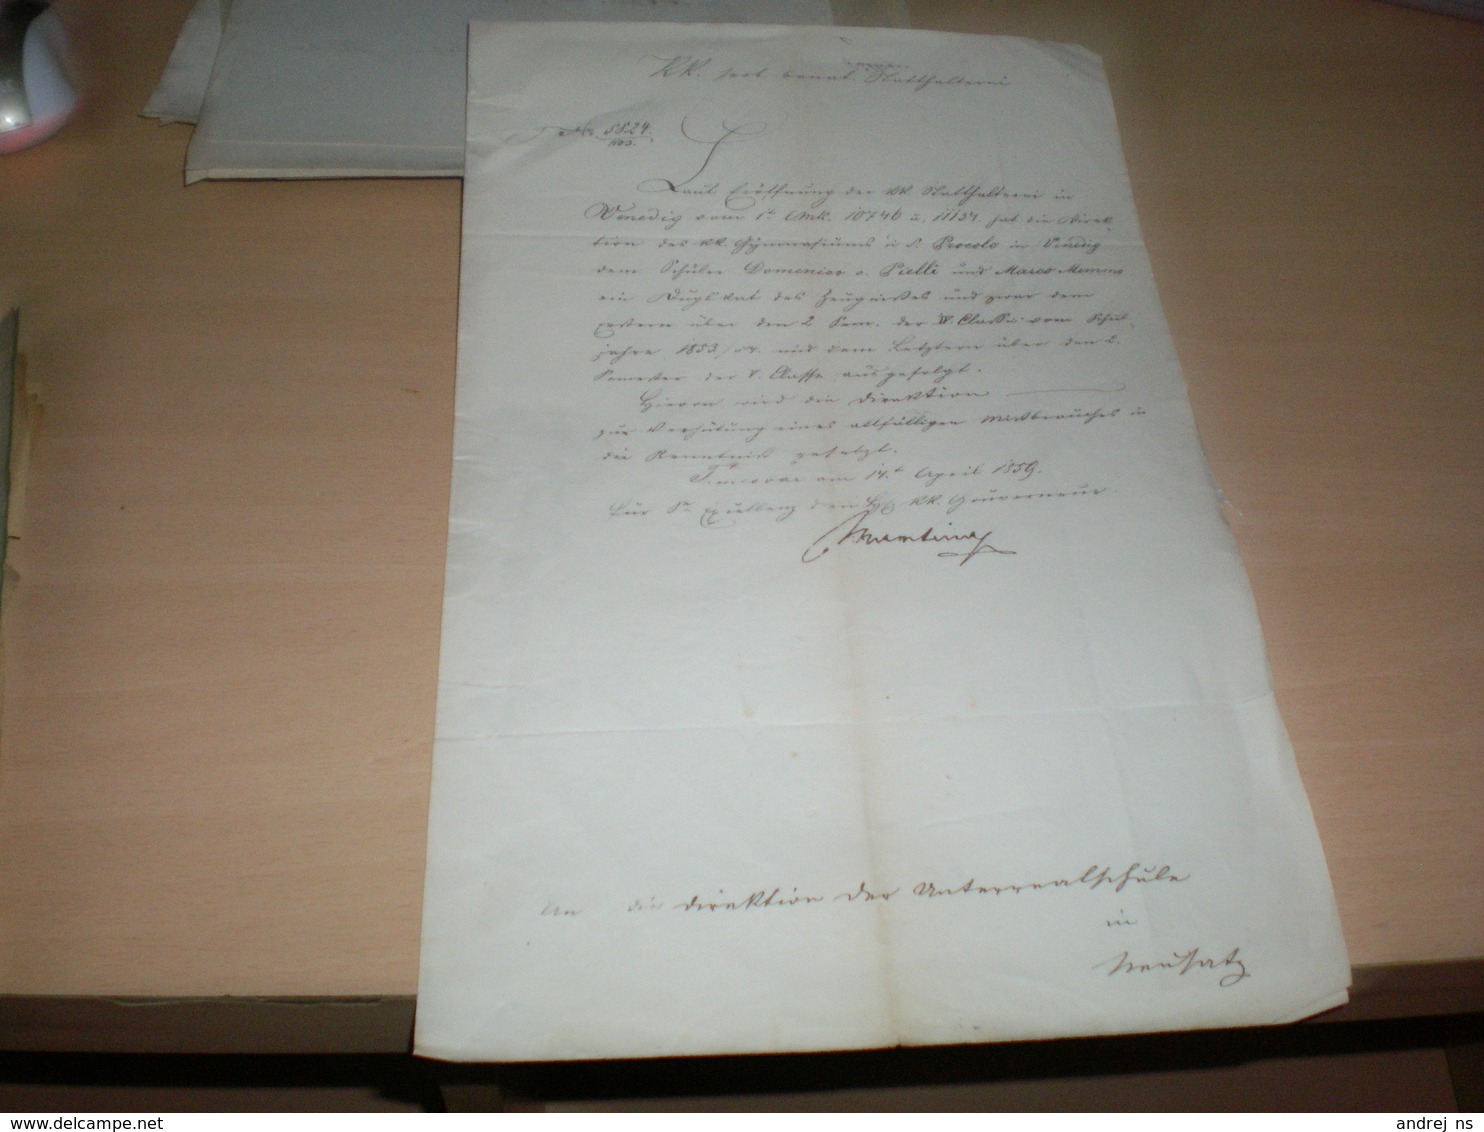 KK. serb. banat. Statthalterei
Nr 5524
1103.
Laut Eröffnung der kk Statthalterei in
Venedig vom 1t 10746 u. 11154 hat die Direk-
tion des kk. Gymnasiums a S. Procolo in Venedig
dem Schüler Domenico Pielli und Marco Memmo
ein Duplikat des Zeugnißes und zwar dem
erstern über den 2 Sem. der IV. Classe vom Schul-
jahre 1853/54. und dem Letztern über den 2.
Semester der V. Classe ausgefolgt.
Hievon wird die Direktion
zur Verhütung eines allfälligen Mißbrauches in
die Kenntniß gesetzt.
Temesvar am 14t April 1859.
Für Sr Exzellenz den H. KK. Gouverneur
An die Direktion der Unterrealschule
in
Neusatz
andrej ns